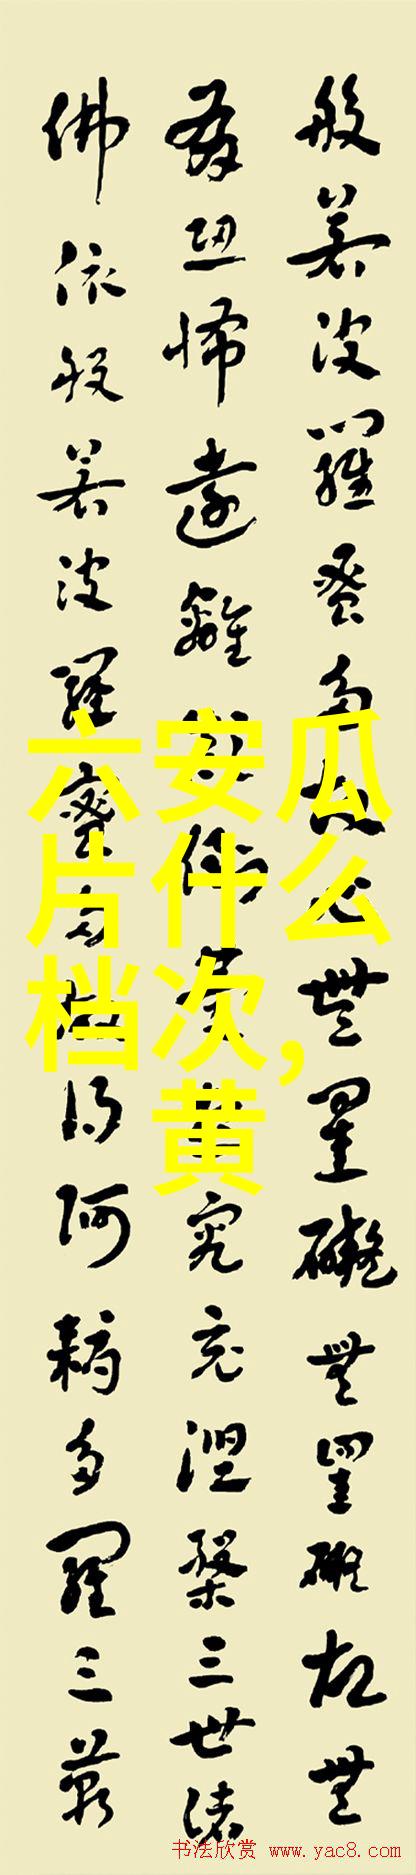 般若波羅蜜多故心無罣礙無罣礙故無
有恐怖遠離顛倒夢想究竟涅槃三世諸
佛依般若波羅蜜多故得阿耨多羅三藐
六安瓜
片什么
档次,
黄
书法欣赏 www.yac8.com